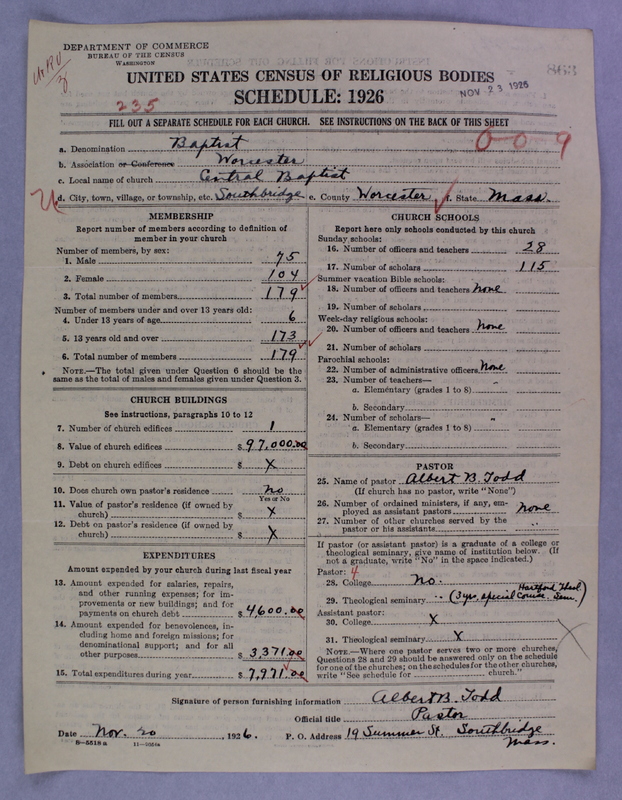 DEPARTMENT OF COMMERCE
BUREAU OF THE CENSUS
WASHINGTON
863
UNITED STATES CENSUS OF RELIGIOUS BODIES
SCHEDULE: 1926
NOV 23 1926
235
FILL OUT A SEPARATE SCHEDULE FOR EACH CHURCH. SEE INSTRUCTIONS ON THE BACK OF THIS SHEET
0-0-9
a. Denomination Baptist
b. Association or Conference Worcester
c. Local name of church Central Baptist
d. City, town, village, or township, etc. Southbridge e. County Worcester f. State Mass.
MEMBERSHIP
Report number of members according to definition of
member in your church
Number of members, by sex:
1. Male 75
2. Female 104
3. Total number of members 179
Number of members under and over 13 years old:
4. Under 13 years of age 6
5. 13 years old and over 173
6. Total number of members 179
NOTE.—The total given under Question 6 should be the
same as the total of males and females given under Question 3.
CHURCH BUILDINGS
See instructions, paragraphs 10 to 12
7. Number of church edifices 1
8. Value of church edifices $ 97,000.00
9. Debt on church edifices $ X
10. Does church own pastor's residence No
Yes or No
11. Value of pastor's residence (if owned by
church) $ X
12. Debt on pastor's residence (if owned by
church) $ X
EXPENDITURES
Amount expended by your church during last fiscal year
13. Amount expended for salaries, repairs,
and other running expenses; for im-
provements or new buildings; and for
payments on church debt $ 4,600.00
14. Amount expended for benevolences, in-
cluding home and foreign missions; for
denominational support; and for all
other purposes $ 3,371.00
15. Total expenditures during year $ 7,971.00
CHURCH SCHOOLS
Report here only schools conducted by this church
Sunday schools:
16. Number of officers and teachers 28
17. Number of scholars 115
Summer vacation Bible schools:
18. Number of officers and teachers None
19. Number of scholars
Week-day religious schools:
20. Number of officers and teachers None
21. Number of scholars
Parochial schools:
22. Number of administrative officers None
23. Number of teachers—
a. Elementary (grades 1 to 8) "
b. Secondary
24. Number of scholars—
a. Elementary (grades 1 to 8) "
b. Secondary
PASTOR
25. Name of pastor Albert B. Todd
(If church has no pastor, write "None")
26. Number of ordained ministers, if any, em-
ployed as assistant pastors None
27. Number of other churches served by the
pastor or his assistants "
If pastor (or assistant pastor) is a graduate of a college or
theological seminary, give name of institution below. (If
not a graduate, write "No" in the space indicated.)
Pastor: 4
28. College No.
29. Theological seminary " (3 yrs. special Course. Hartford Theol. Sem.)
Assistant pastor:
30. College X
31. Theological seminary X
NOTE.—Where one pastor serves two or more churches,
Questions 28 and 29 should be answered only on the schedule
for one of the churches; on the schedules for the other churches,
write "See schedule for church."
Signature of person furnishing information Albert B. Todd
Official title Pastor
Date Nov. 20, 1926. P. O. Address 19 Summer St. Southbridge
Mass.
8—5518 a